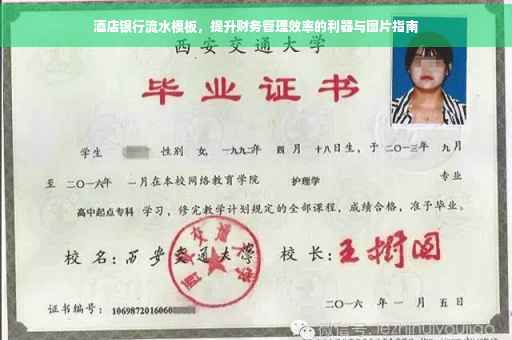 酒店银行流水模板，提升财务管理效率的利器与图片指南
西安交通大学
毕业证书
学生 性别 女，一九九二年 四月 十八日生，于二〇一三年 九月
至 二〇一六年 一月在本校网络教育学院 护理学 专业
高中起点专科 学习，修完教学计划规定的全部课程，成绩合格，准予毕业。
校名：西安交通大学 校长：王树国
西安交通大学
证书编号：1069872016060
二〇一六年一月五日
微信号: